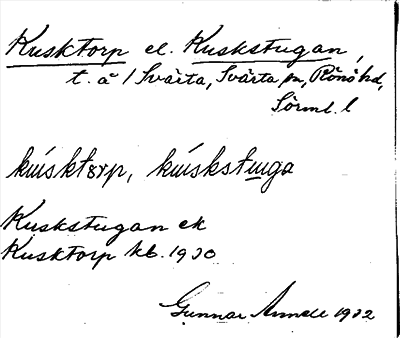 Kusktorp el. Kuskstugan,
t. å 1 Svärta, Svärta sn, Rönö hd,
Sörml. l
kuskstugan ek
Kusktorp kb. 1930
Gunnar Annell 1932